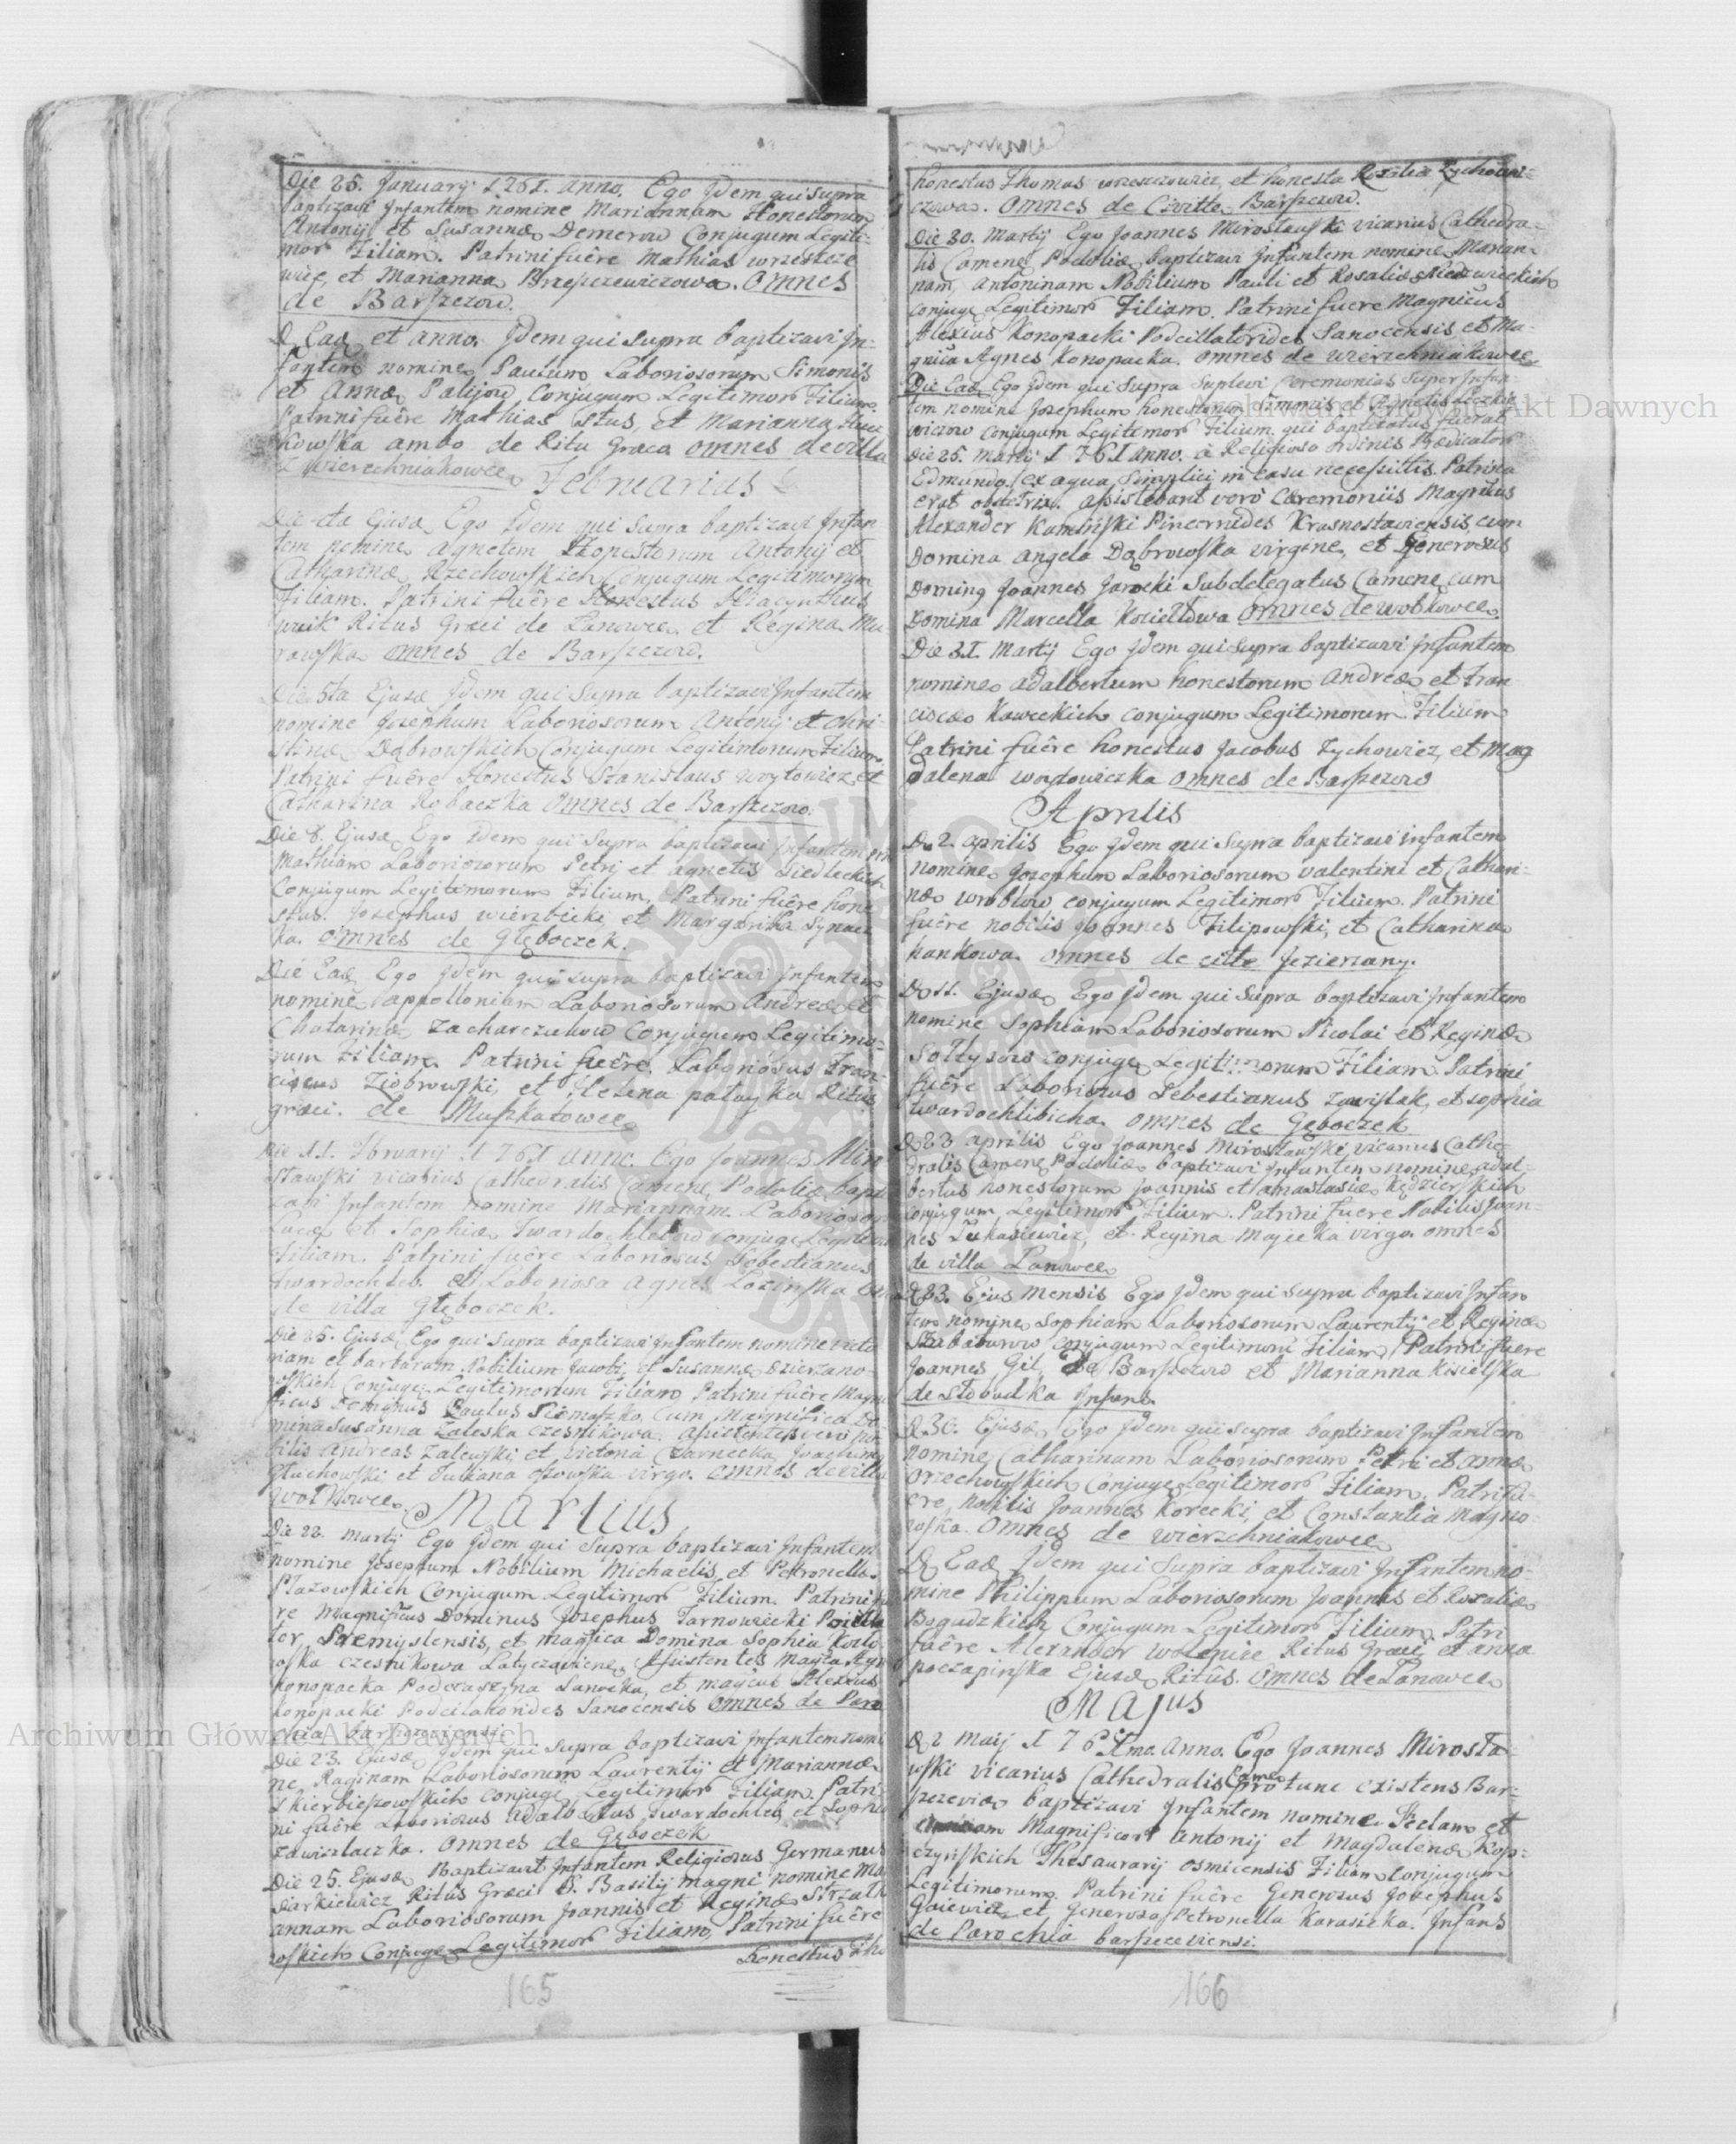 Die 25. Januarij 1761. anno. Ego Idem qui supra
baptizavi Infantem nomine Mariannam Honestorum
Antonij et Susannæ Demerow Conjugum Legiti-
mor Filiam. Patrini fuêre Mathias
et Marianna Brzeszczewiczowa. Omnes
de Barszczow.
D Eadē et anno. Idem qui supra baptizavi In-
fantem nomine Paulum Laboriosorum Simonis
et Annæ Palijow Conjugum Legitimor Filium.
Patrini fuêre Mathias et Marianna
kowska ambo de Ritu Græco omnes de villa
Wierzchniakowce
Februarius
Die 4ta Ejusd Ego Idem qui supra baptizavi Infan-
tem nomine Agnetem Honestorum Antonij et
Catharinæ Rzechowskich Conjugum Legitimorum
Filiam. Patrini fuêre Honestus Hiacynthus
Ritus Græci de Lanowce et Regina Mu-
rawska omnes de Barszczow.
Die 5ta Ejusd Idem qui supra baptizavi Infantem
nomine Josephum Laboriosorum Antonij et Chri-
stinæ Dąbrowskich Conjugum Legitimorum Filium.
Patrini fuêre Honestus Stanislaus et
Catharina Robaczka Omnes de Barszczow.
Die 8. Ejusd Ego Idem qui supra baptizavi Infantem
Mathiam Laboriosorum Petri et Agnetis Siedleckich
Conjugum Legitimorum Filium, Patrini fuêre hone
stus. Josephus Wierzbicki et Margaritha Synacz
ka. omnes de Głęboczek.
Die Eadē Ego Idem qui supra baptizavi Infantem
nomine Appolloniam Laboriosorum Andreæ et
Chatarinæ Zacharczukow Conjugum Legitimo-
rum Filiam. Patrini fuêre. Laboriosus Fran-
ciscus Ziobrowski, et Helena Ritûs
græci. de Muszkatowce
Die 11. Februarij 1761 anno. Ego Joannes Miro
sławski vicarius Cathedralis Camene Podoliæ bapti
zavi Infantem nomine Mariannam Laboriosor
Lucæ et Sophiæ Twardochlebow Conjugē Legitimor
Filiam. Patrini fuêre Laboriosus Sebestianus
Twardochleb. et Laboriosa Agnes Łozinska
de villa Głęboczek.
Die 25. Ejusd Ego qui supra baptizavi Infantem nomine victo
riam et barbaram Nobilium Jacobi, et Susannæ Dzierzano-
wskich Conjuge Legitimorum Filiam Patrini fuêre Magni
ficus Dominus Paulus Siemaszko, cum Magnifica Do
mina Susanna Zaleska Czesnikowa. Assistentes vero No
bilis Andreas Zalewski, et Victoria Czarnecka, Joachimus
Głuchowski et Juliana virgo. omnes de villa
Wołkowce
Martius
Die 22. Martij Ego Idem qui supra baptizavi Infantem
nomine Josephum Nobilium Michaelis et Petronellæ
Płazowskich Conjugum Legitimor Filium. Patrini fu
re Magnificus Dominus Josephus Tarnowiecki
tor Premyslensis, et magfica Domina Sophia
oska czesnikowa Latyczoviene Assistentes
konopacka Podczaszyna Sanocka, et Alexius
konopacki Sanocensis omnes de Paro
chia barszczoviensi
Die 23. Ejusd Idem qui supra baptizavi Infantem nomi
ne Raginam Laboriosorum Laurentij et Mariannæ
Skierbieszowskich Conjuge Legitimor Filiam. Patri
ni fuêre Laboriosus Adalbertus Twardochleb, et Sophia
Zawislaczka. omnes de Gęboczek
Die 25. Ejusd Baptizavit Infantem Religiosus Germanus
Siarkiewicz Ritûs Græci S. Basilij magni nomine Ma
annam Laboriosorum Joannis et Reginæ
wskich Conjuge Legitimor Filiam, Patrini fuêre
honestus Tho
165
honestus Thomas et honesta Rozalia Tychowi-
czowa. Omnes de Civitte Barszczow.
Die 30. Martij Ego Joannes Mirosławski vicarius Cathedra-
lis Camene Podoliæ baptizavi Infantem nomine Marian
nam, Antoninam Nobilium Pauli et Rosaliæ
conjuge Legitimor Filiam. Patrini fuere Magnicus
Alexius Konopacki Sanocensis et Ma-
gnica Agnes Konopacka. omnes de Wierzchniakowce
Die Eadē Ego Idem qui supra suplevi Ceremonias super Infan-
tem nomine Josephum honestorum Simonis et Agnetis
wiczow conjugum Legitimor Filium. qui baptizatus fuerat
Die 25. Martij 1761 anno. à Religioso ordinis Prædicator
Edmundo. ex aqua simplici in casu necessittis. Patrina
erat obstetrix. assistebant verò Ceremoniis Magnicus
Alexander Kaminski Pincernides Krasnostaviensis cum
Domina Angela Dąbrowska virgine, et Generosus
Dominus Joannes Jarocki Subdelegatus Camene cum
Domina Marcella omnes de Wołkowce
Die 31 Martij Ego Idem qui supra baptizavi Infantem
nomine Adalbertum honestorum Andreæ et Fran
ciscæ Kaweckich Conjugum Legitimorum Filium
Patrini fuêre honestus Jacobus Tychowicz, et Mag
dalena omnes de Barszczow
Aprilis
D 2. Aprilis Ego Idem qui supra baptizavi infantem
nomine Josephum Laboriosorum valentini et Cathari-
næ Wroblow conjugum Legitimor Filium. Patrini
fuêre nobilis Joannes Filipowski, et Catharina
hankowa. omnes de citte Jezierzany.
D 11. Ejusd Ego Idem qui supra baptizavi Infantem
nomine Sophiam Laboriosorum Nicolai et Reginæ
Sołtysow conjuge Legitimorum Filiam. Patrini
fuêre Laboriosus Sebestianus Zawislak, et sophia
twardochlibicha omnes de Gęboczek
D 23 Aprilis Ego Joannes Mirosławski vicarius Cathe
dralis Camene Podoliæ baptizavi Infantem nomine Adal-
bertus honestorum Joannis et Anastasiæ Kędzierskich
conjugum Legitimor Filium. Patrini fuere Nobilis Joan-
nes Łukasiewicz, et Regina Majecka virgo. omnes
de villa Lanowce
D 23. Ejus Mensis Ego Idem qui supra baptizavi Infan
tem nomine Sophiam Laboriosorum Laurentij et Reginæ
Conjugum Legitimor Filiam Patrini fuere
Joannes Gil, de Barszczow et Marianna Kisielska
de Słobudka Infans.
D 30. Ejusd Ego Idem qui supra baptizavi Infantem
nomine Catharinam Laboriosorum Petri et Annæ
Orzechowskich Conjuge Legitimor Filiam, Patri fu-
ere, nobilis Joannes Korecki, et Constantia Magno-
wska. Omnes de Wierzchniakowce
D Eadē Idem qui supra baptizavi Infantem no-
mine Philippum Laboriosorum Joannis et Rozaliæ
Bogudzkich Conjugum Legitimor Filium, Patri
fuêre Alexander Ritus Græci et Anna
poczapinska Ejusd Ritûs. Omnes de Lanowce
Majus
D 2 Maij 1761mo. Anno. Ego Joannes Mirosła-
wski vicarius Cathedralis Camen pro tunc existens Bar-
szczeviæ baptizavi Infantem nomine Teclam et
Magnificor Antonij et Magdalenæ Kop-
czynskich Thesaurarij Filiam conjugum
Legitimorum. Patrini fuêre Generosus Josephus
et Generosa Petronella Karasicka. Infans
de Parochia barszczeviensi.
166
Archiwum Główne Akt Dawnych
Archiwum Główne Akt Dawnych